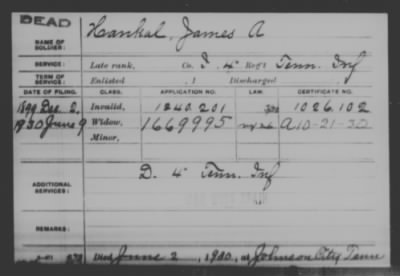 DEAD
NAME OF SOLDIER: Hankal, James A
SERVICE: Late rank, Co. I 4 Reg't Tenn. Inf
TERM OF SERVICE: Enlisted , 1 Discharged , 1
DATE OF FILING. CLASS. APPLICATION NO. LAW. CERTIFICATE NO.
1899 Dec 2, Invalid, 1240.201 1026.102
1930 June 9 Widow, 1669995 A10-21-30
Minor,
ADDITIONAL SERVICES: D. 4 Tenn. Inf
REMARKS:
Died June 2, 1930, at Johnson City Tenn